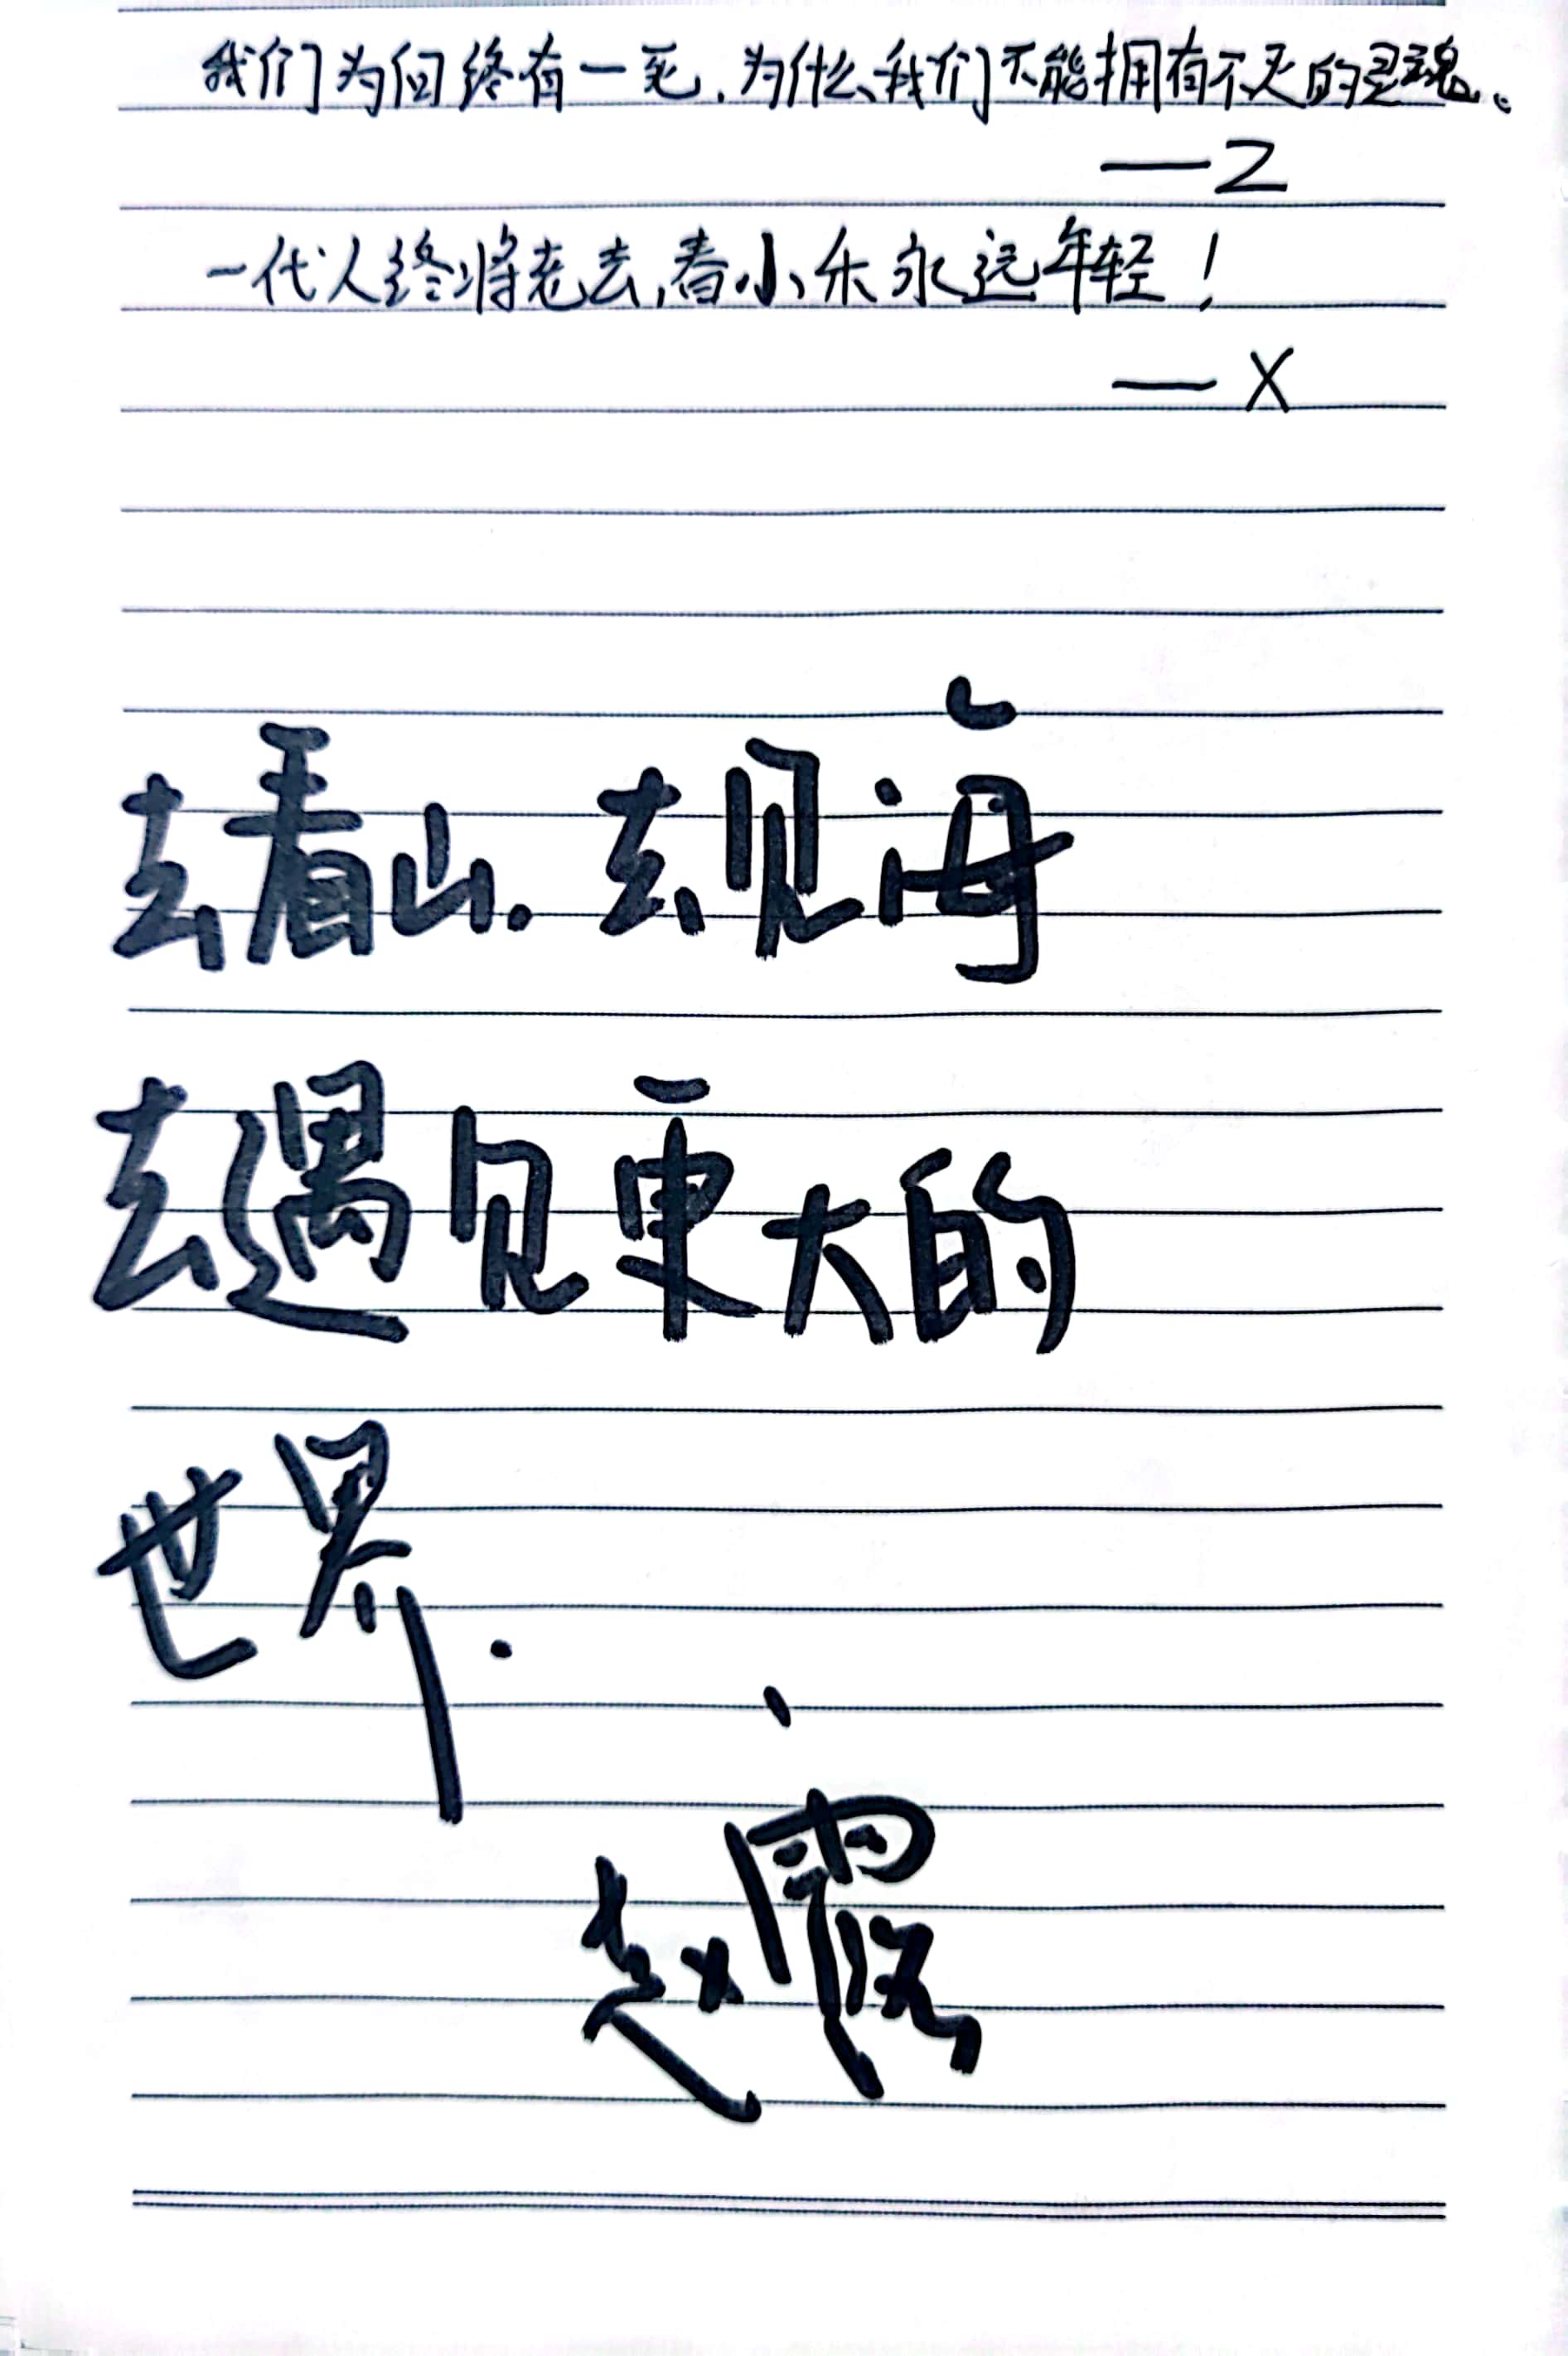 我们为何终有一死，为什么我们不能拥有不灭的灵魂。
—Z
一代人终将老去，春小乐永远年轻！
—X
去看山.去见海
去遇见更大的
世界.
赵露